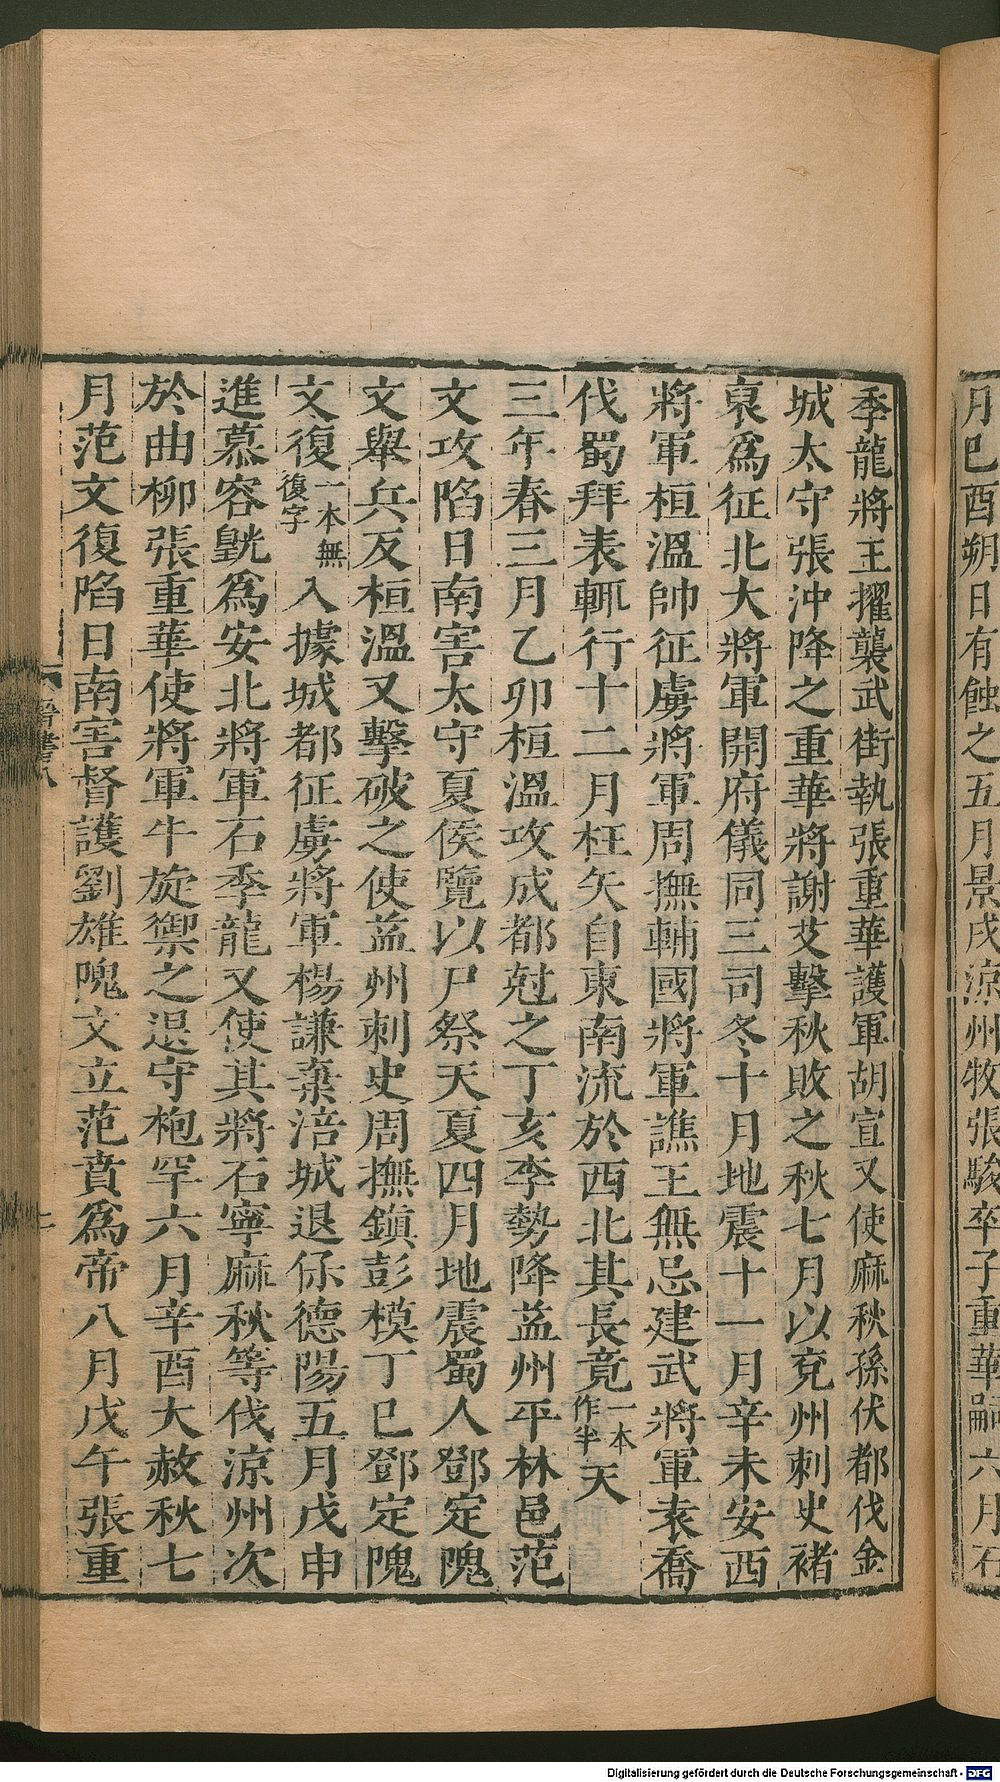 月巳酉朔日有蝕之五月景戌涼州牧張駿卒子重華嗣六月石
季龍將王擢襲武街執張重華護軍胡宣又使麻秋孫伏都伐金
城太守張沖降之重華將謝艾擊秋敗之秋七月以兗州刺史褚
裒爲征北大將軍開府儀同三司冬十月地震十一月辛未安西
將軍桓溫帥征虜將軍周撫輔國將軍譙王無忌建武將軍袁喬
伐蜀拜表輒行十二月枉矢自東南流於西北其長竟一本作半天
三年春三月乙卯桓溫攻成都尅之丁亥李勢降益州平林邑范
文攻陷日南害太守夏侯覽以尸祭天夏四月地震蜀人鄧定隗
文舉兵反桓溫又擊破之使益州刺史周撫鎮彭模丁巳鄧定隗
文復一本無復字入據城都征虜將軍楊謙棄涪城退保德陽五月戊申
進慕容皝爲安北將軍石季龍又使其將石寧麻秋等伐涼州次
於曲柳張重華使將軍牛旋禦之退守枹罕六月辛酉大赦秋七
月范文復陷日南害督護劉雄隗文立范賁爲帝八月戊午張重
晉書八
Digitalisierung gefördert durch die Deutsche Forschungsgemeinschaft - DFG